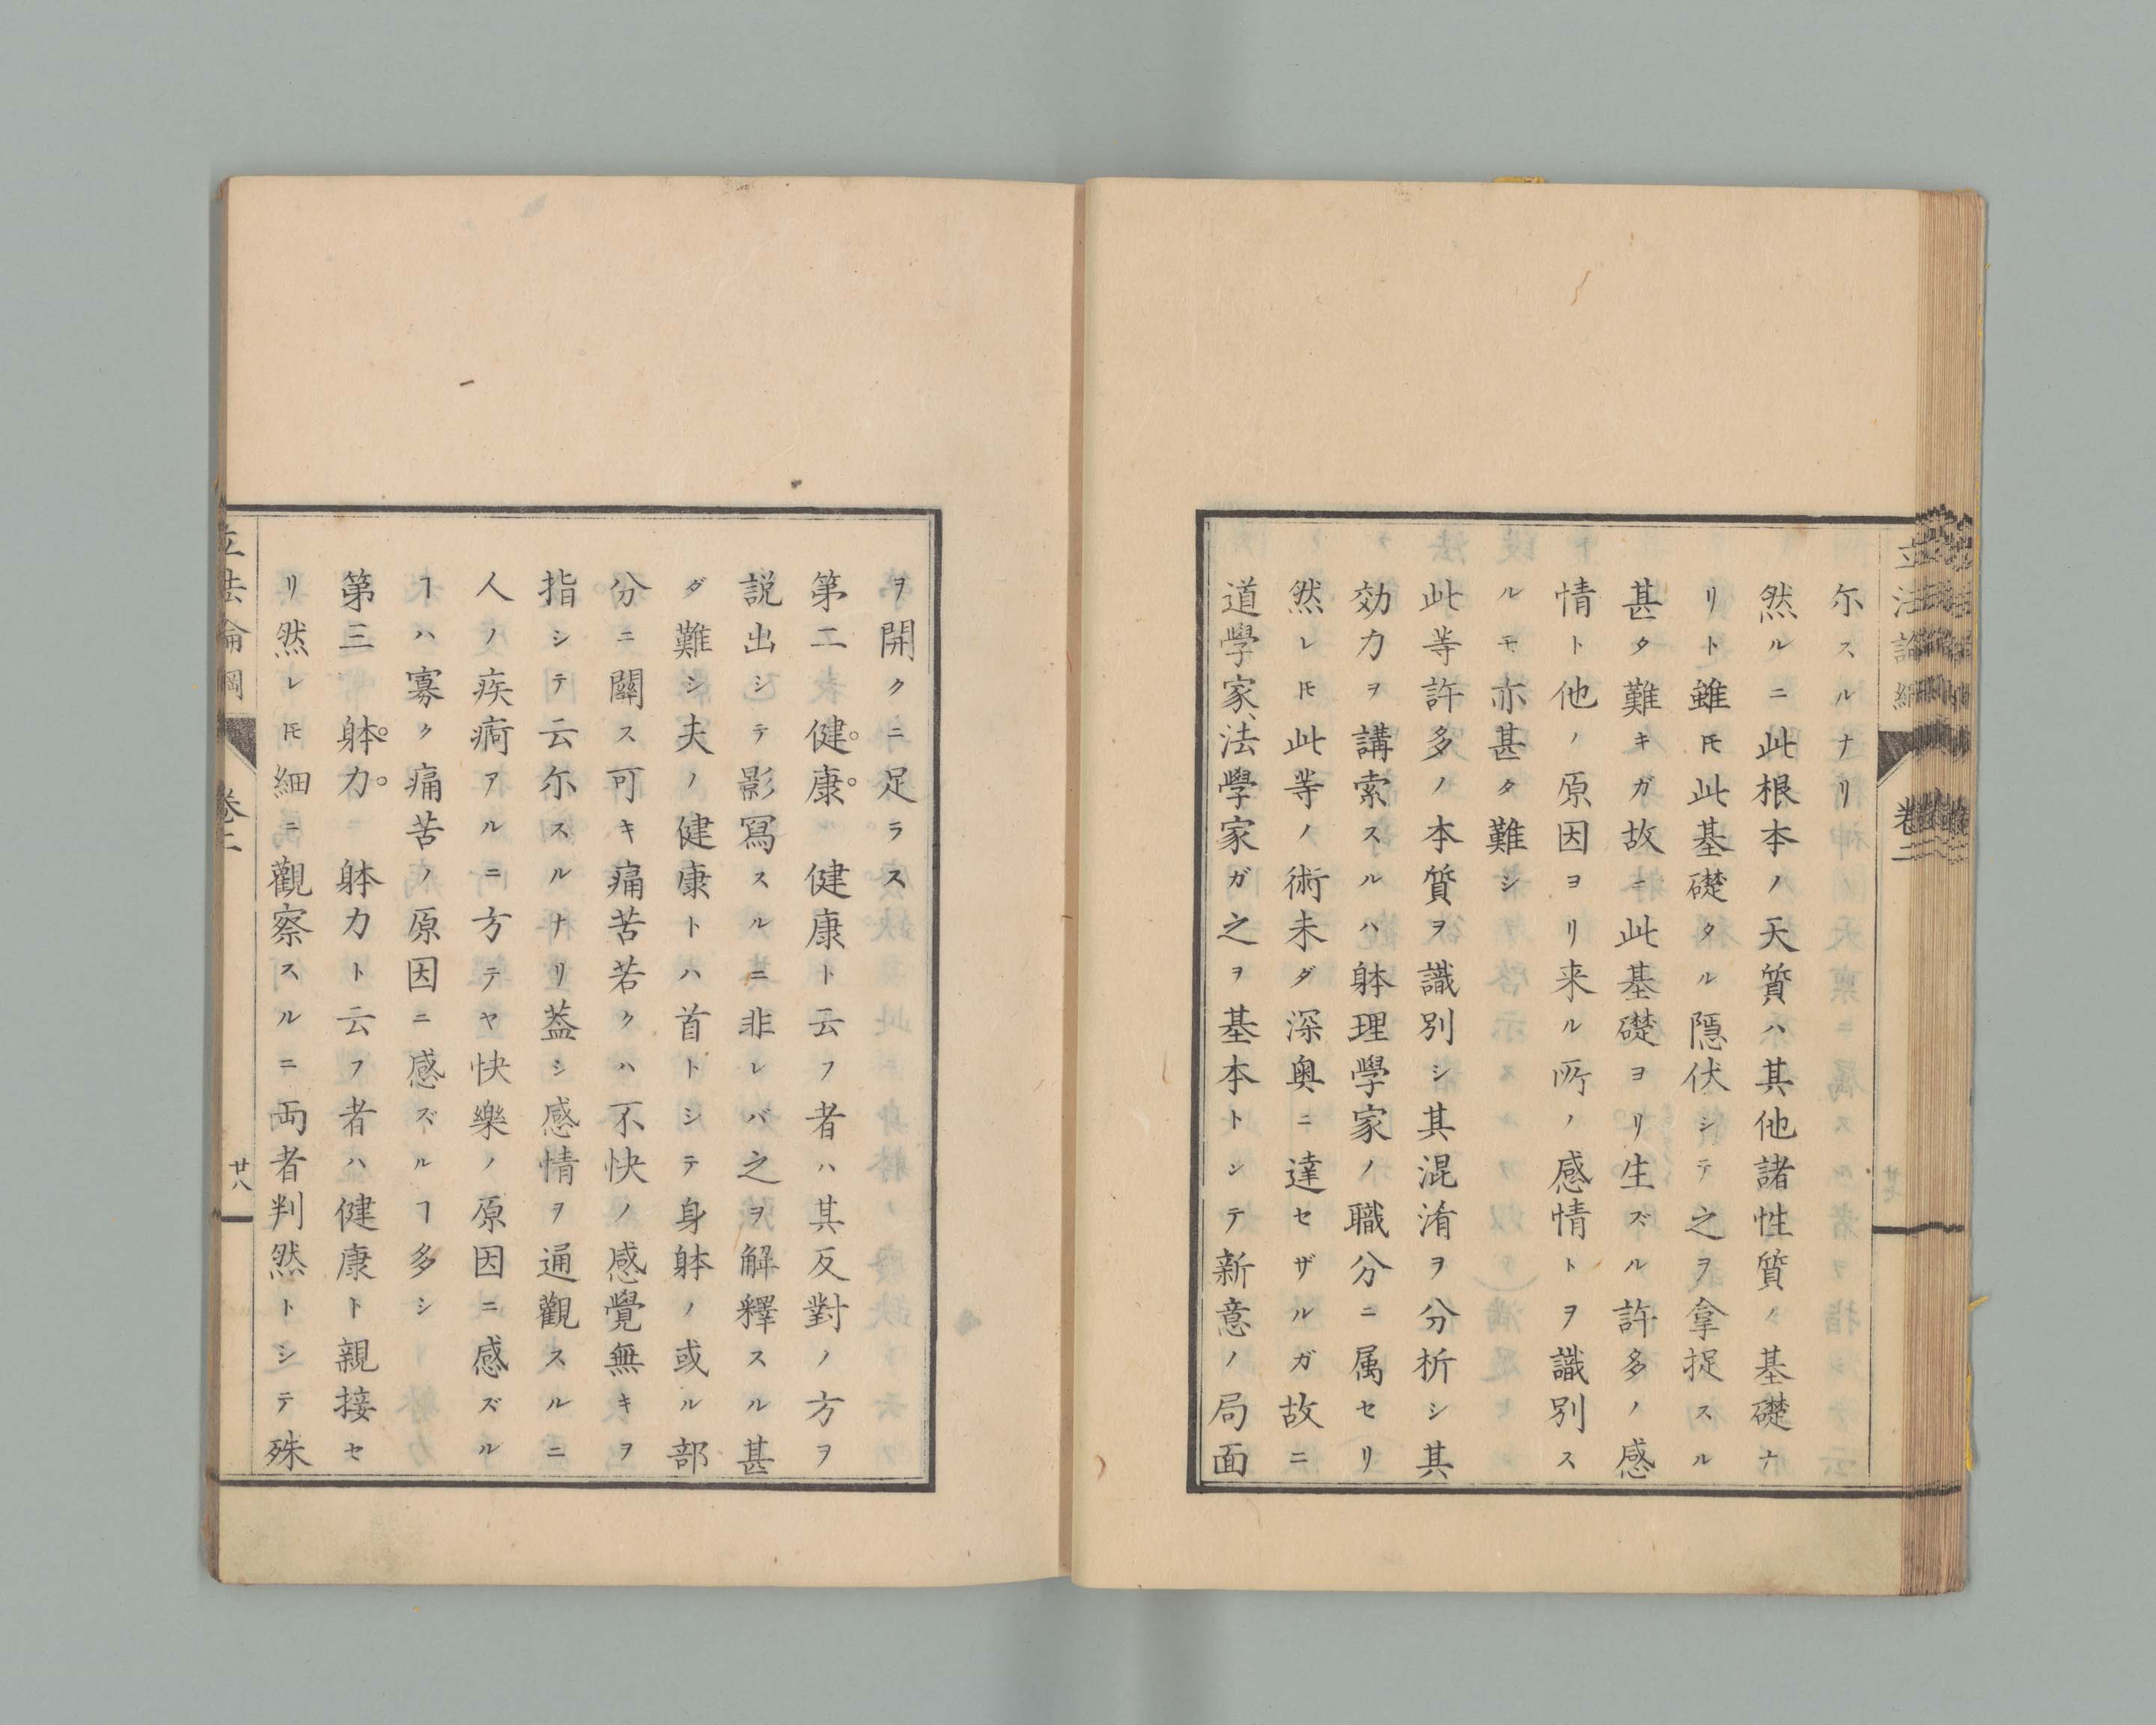 立法論綱 卷二
尓スルナリ
然ルニ此根本ノ天質ハ其他諸性質ノ基礎ナ
リト雖𪜈此基礎タル隱伏シテ之ヲ拿捉スル
甚タ難キガ故ニ此基礎ヨリ生ズル許多ノ感
情ト他ノ原因ヨリ来ル所ノ感情トヲ識別ス
ルモ亦甚タ難シ
此等許多ノ本質ヲ識別シ其混淆ヲ分析シ其
効力ヲ講索スルハ躰理學家ノ職分ニ属セリ
然レ𪜈此等ノ術未ダ深奥ニ達セザルガ故ニ
道學家、法學家ガ之ヲ基本トシテ新意ノ局面
ヲ開クニ足ラス
第二 健康 健康ト云フ者ハ其反對ノ方ヲ
説出シテ影寫スルニ非レバ之ヲ解釋スル甚
ダ難シ夫ノ健康トハ首トシテ身躰ノ或ル部
分ニ關ス可キ痛苦若クハ不快ノ感覺無キヲ
指シテ云尓スルナリ蓋シ感情ヲ通觀スルニ
人ノ疾病アルニ方テヤ快樂ノ原因ニ感ズル
ヿハ寡ク痛苦ノ原因ニ感ズルヿ多シ
第三 躰力 躰力ト云フ者ハ健康ト親接セ
リ然レ𪜈細ニ觀察スルニ両者判然トシテ殊
立法論綱 卷二 廿八